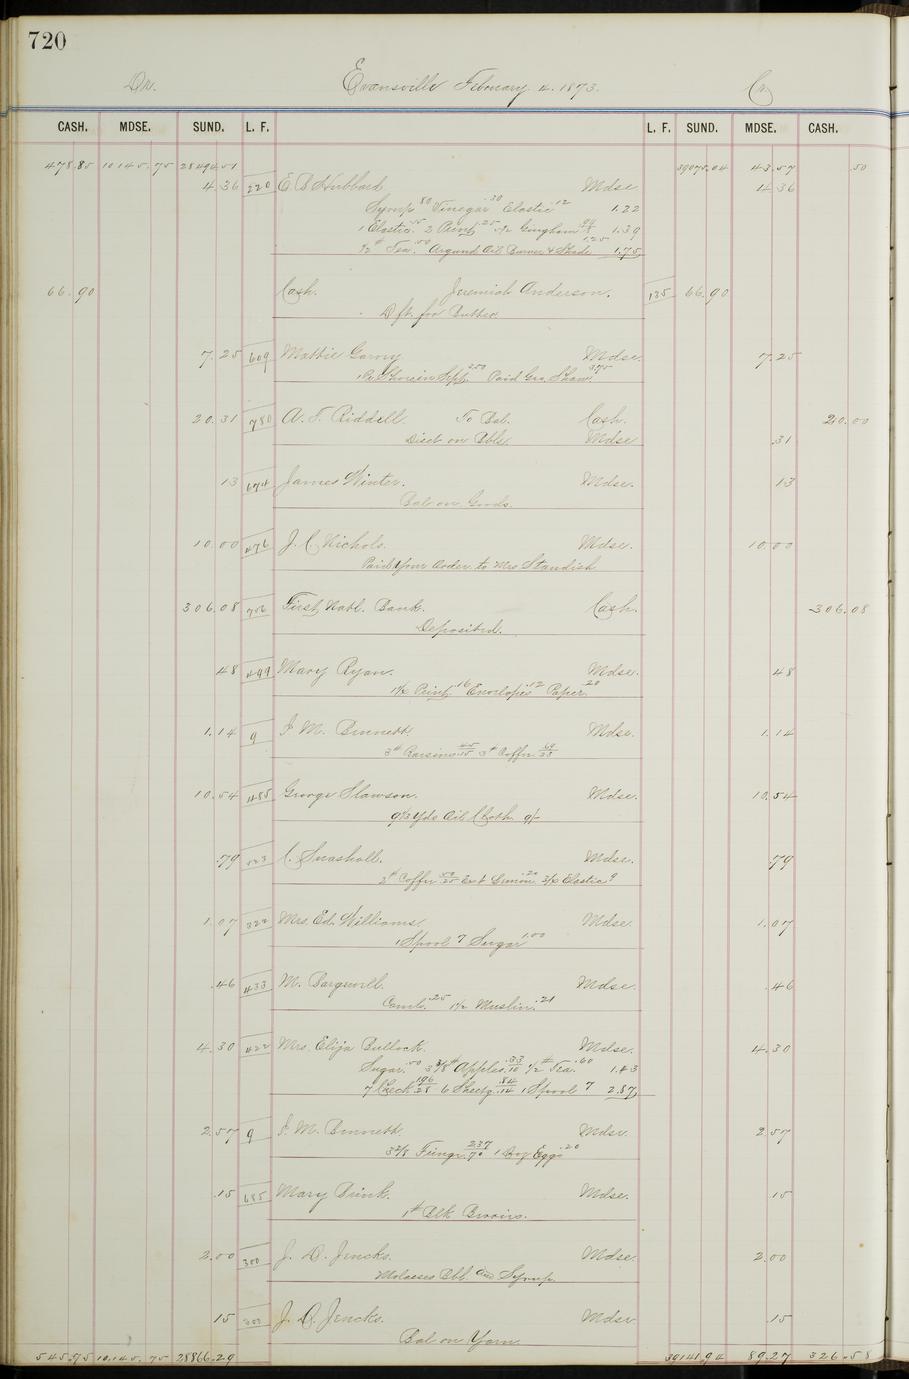 720
Dr. Evansville February 4. 1873. Cr.
CASH. MDSE. SUND. L. F. L. F. SUND. MDSE. CASH.
478.85 10145.75 28494.51 39075.04 43.57 .50
4.36 220 E. B. Hubbard Mdse 4.36
Syrup 80 Vinegar .30 Elastic .12 1.22
1 Elastic 2 Print .25 Gingham 1.39
1/2 # Tea .50 Argund Oil Burner & Shade 1.25 1.75
66.90 Cash. Jeremiah Anderson. 135 66.90
Dft. for Butter
7.25 609 Mattie Garry Mdse. 7.25
2.50 Paid Geo. Shaw
20.31 780 A. T. Riddell. To Bal. Cash. 20.00
Disct on Bbl. Mdse .31
13 674 James Winter. Mdse. 13
Bal on Goods.
10.00 476 J. C. Nichols. Mdse. 10.00
Paid Your Order to Mrs Standish
306.08 706 First Natl. Bank. Cash. 306.08
Deposited.
48 499 Mary Ryan. Mdse. 48
Print .16 Envelopes .12 Paper .20
1.14 9 I. M. Bennett. Mdse. 1.14
3# Raisins 45/15 3# Coffee 69/23
10.54 485 George Slawson. Mdse. 10.54
9 1/3 Yds Oil Cloth 9/
.79 C. Snashall. Mdse. .79
2# Coffee 50/25 Ext Lemon .20 Elastic 9
1.07 322 Mrs. Ed. Williams. Mdse. 1.07
1 Spool 7 Sugar 1.00
.46 433 M. Mdse. .46
.25 1 1/2 Muslin .21
4.30 422 Mrs. Eliza Bullock. Mdse. 4.30
Sugar .50 3 3/8# Apples .33/10 1/2 # Tea .60 1.43
7 Check 196/28 6 Sheetg. .84/14 1 Spool 7 2.87
2.57 9 I. M. Bennett. Mdse. 2.57
3 3/8 Fringe 237/70 1 Doz Eggs 20
.15 685 Mary Brink. Mdse. 15
1# Blk
2.00 300 J. D. Jencks. Mdse. 2.00
Molasses Bbl. and Syrup
15 J. D. Jencks. Mdse .15
Bal on Yarn
545.75 10,145.75 28866.29 39141.94 89.27 326.58